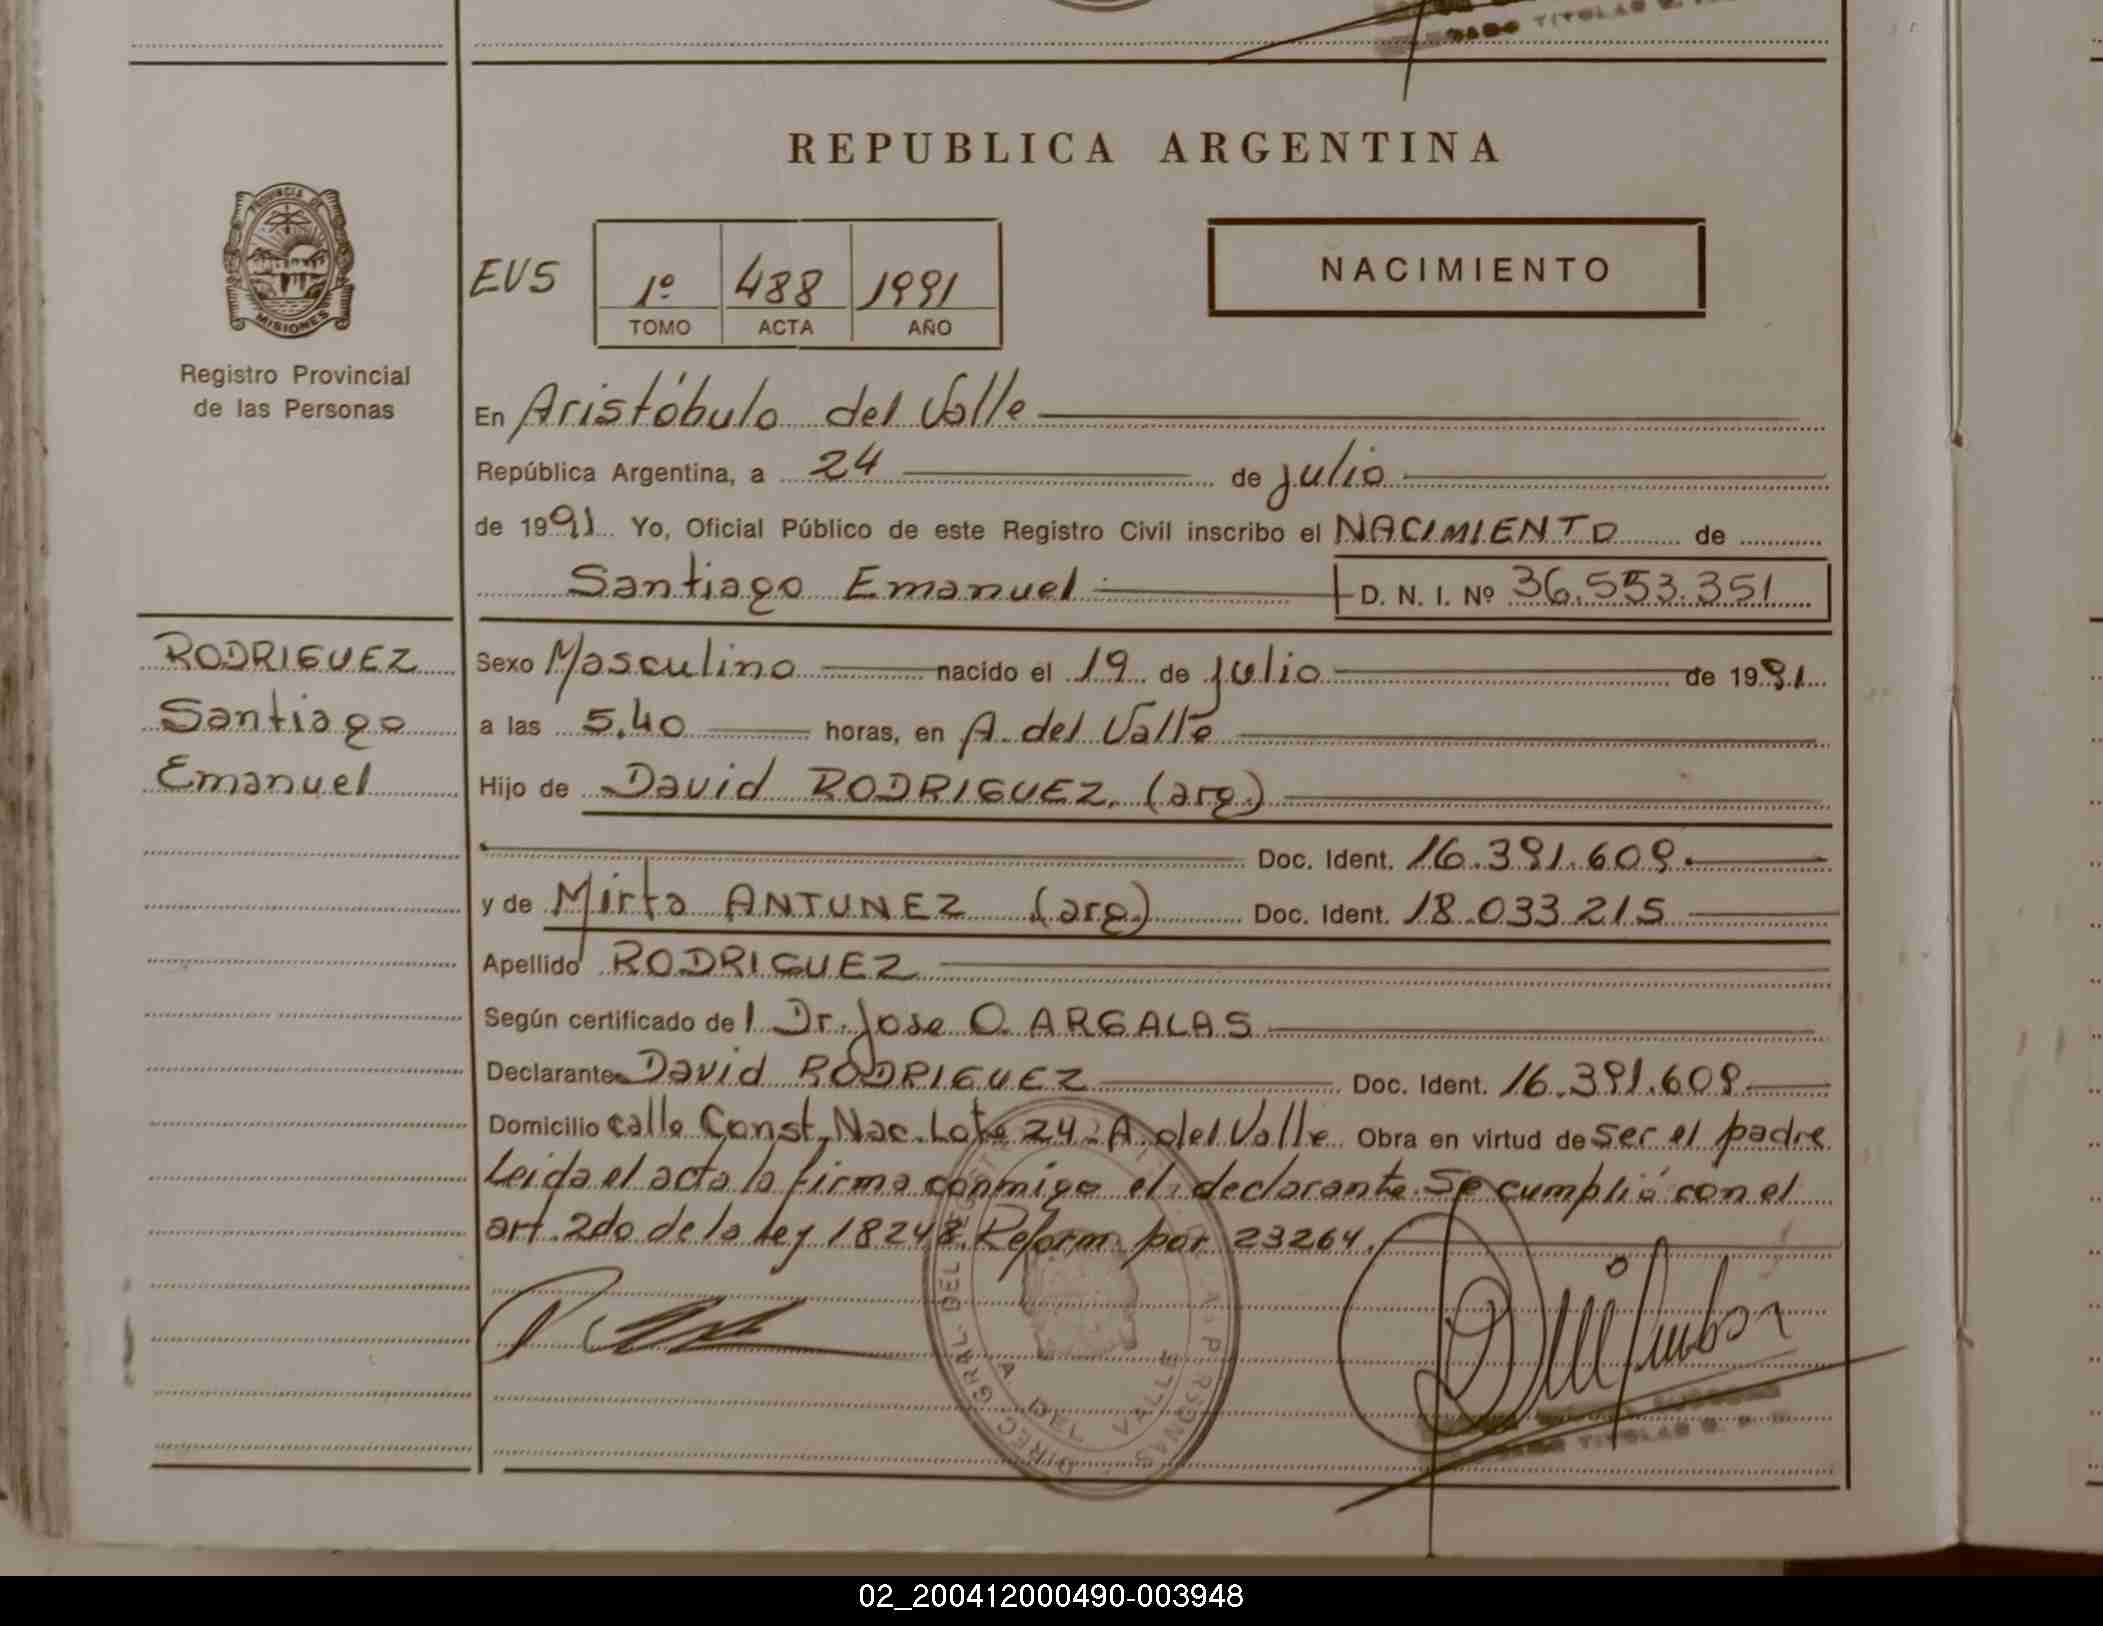 REPUBLICA ARGENTINA
PROVINCIA DE
MISIONES
Registro Provincial
de las Personas
EVS
1º 488 1991
TOMO ACTA AÑO
NACIMIENTO
En Aristóbulo del Valle
República Argentina, a 24 de julio
de 1991 Yo, Oficial Público de este Registro Civil inscribo el NACIMIENTO de
Santiago Emanuel D. N. I. Nº 36.553.351
RODRIGUEZ
Santiago
Emanuel
Sexo Masculino nacido el 19 de julio de 1991
a las 5,40 horas, en A. del Valle
Hijo de David RODRIGUEZ (arg.)
Doc. Ident. 16.391.609
y de Mirta ANTUNEZ (arg) Doc. Ident. 18.033.215
Apellido RODRIGUEZ
Según certificado del Dr. Jose O. ARGALAS
Declarante David RODRIGUEZ Doc. Ident. 16.391.609
Domicilio calle Const. Nac. Lote 24 - A. del Valle Obra en virtud de ser el padre
Leida el acta la firma conmigo el declarante. Se cumplió con el
art. 2do de la Ley 18248. Reform. por 23264.
DIREC. GRAL. DEL
A. DEL VALLE
TITULAR
02_200412000490-003948